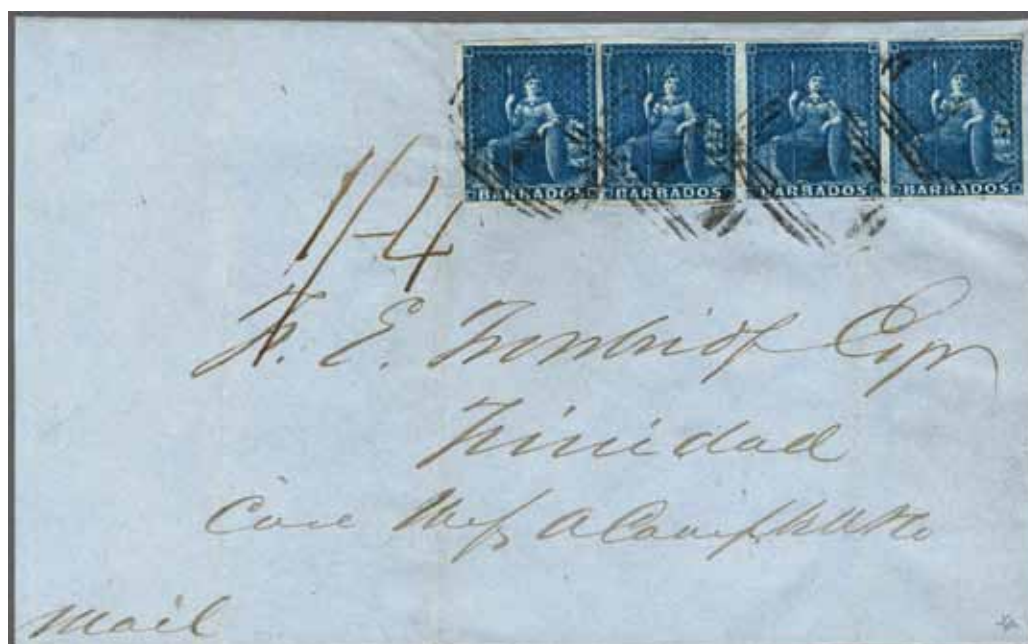 BARBADOS BARBADOS BARBADOS BARBADOS
1/-4
E. Esqr
Trinidad
Care Messrs A Campbell & Co
Mail